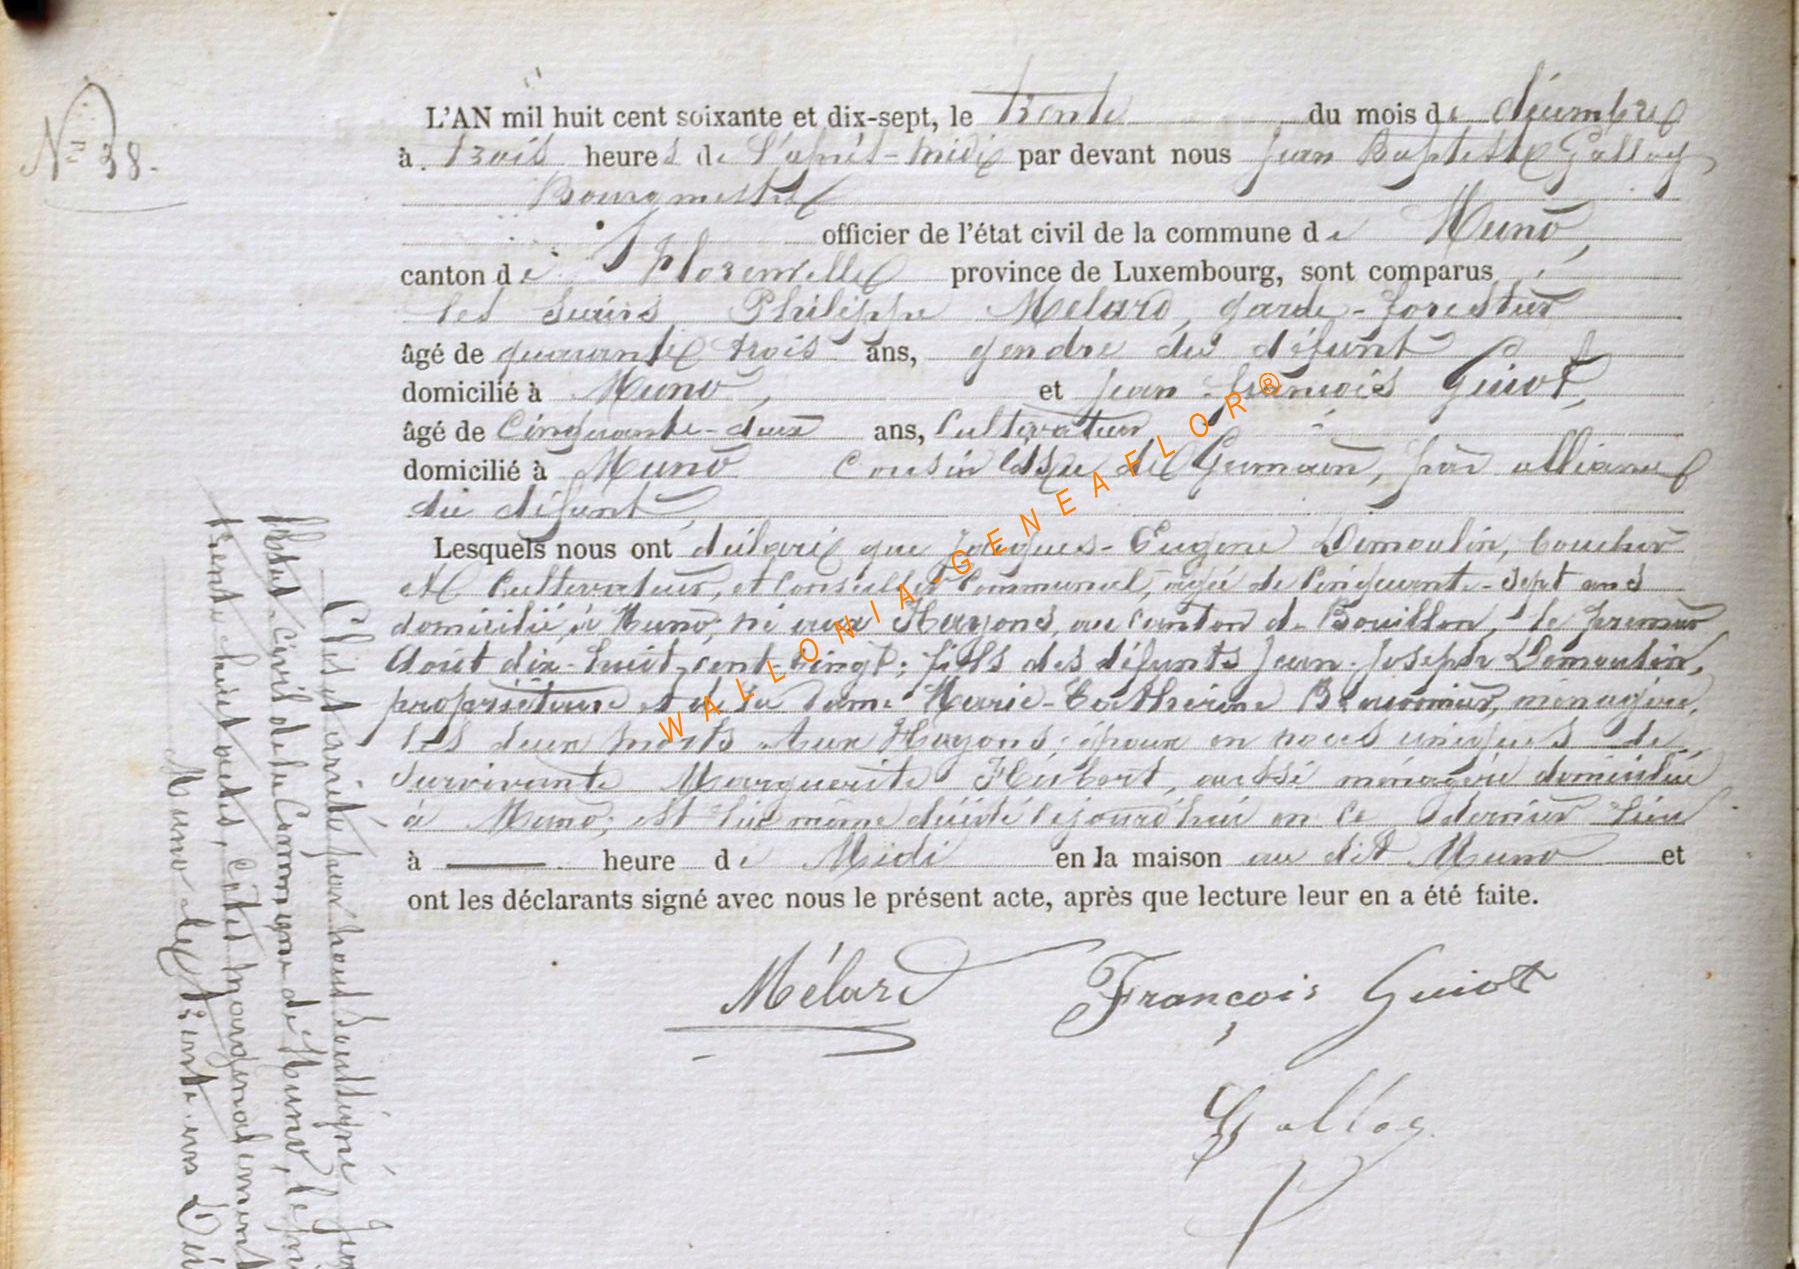 N° 38.
L'AN mil huit cent soixante et dix-sept, le trente du mois de décembre
à trois heures de l'après-midi par devant nous Jean Baptiste Galloy
Bourgmestre
officier de l'état civil de la commune de Muno,
canton de Florenville province de Luxembourg, sont comparus
les sieurs Philippe Mélard, garde-forestier
âgé de quarante trois ans, gendre du défunt
domicilié à Muno, et Jean François Guiot,
âgé de Cinquante-deux ans, Cultivateur
domicilié à Muno Cousin issu de Germain, par alliance
du défunt
Lesquels nous ont déclaré que Jacques-Eugène Demoulin, boucher
et Cultivateur, et Conseiller Communal, agé de Cinquante-sept ans
domicilié à Muno, né aux Hayons, au Canton de Bouillon, le premier
Août dix-huit-cent-vingt; fils des défunts Jean-Joseph Demoulin,
propriétaire et de sa dame Marie-Catherine ménagère,
les deux morts aux Hayons; époux en noces uniques de
survivante Marguerite Hubert, aussi ménagère domiciliée
à Muno; est lui même décédé cejourd'hui en ce dernier lieu
à heure de Midi en la maison au dit Muno et
ont les déclarants signé avec nous le présent acte, après que lecture leur en a été faite.
Mélard François Guiot
Galloy
Clos et arrêté par nous soussigné,
l'état-civil de la Commune de Muno, le
trente huit actes, cotés marginalement
Muno le trente un Dé
WALLONIA-GENEAFLOR®